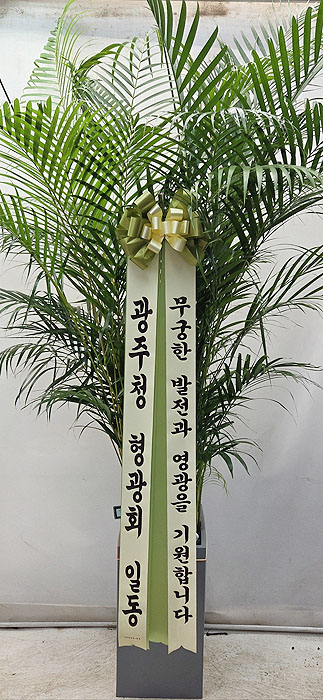 무궁한 발전과 영광을 기원합니다
광주청 형광회 일동